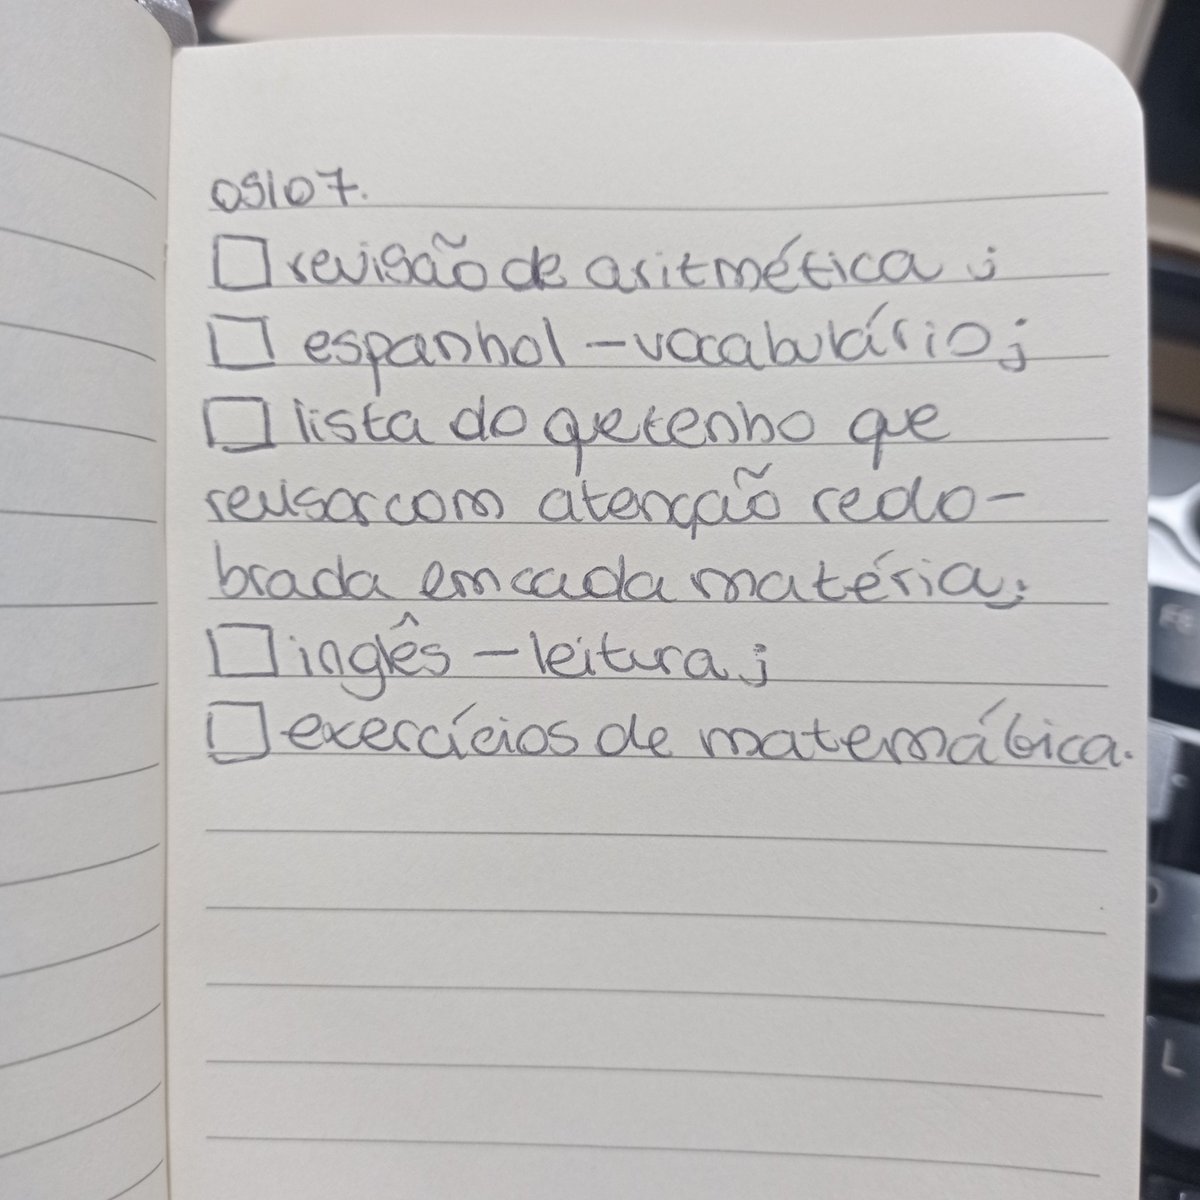 05/07.
☐ revisão de aritmética;
☐ espanhol - vocabulário;
☐ lista do que tenho que
revisar com atenção redo-
brada em cada matéria;
☐ inglês - leitura;
☐ exercícios de matemática.
F6
L